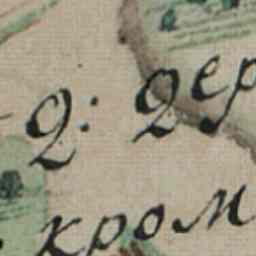 2: дер
кром